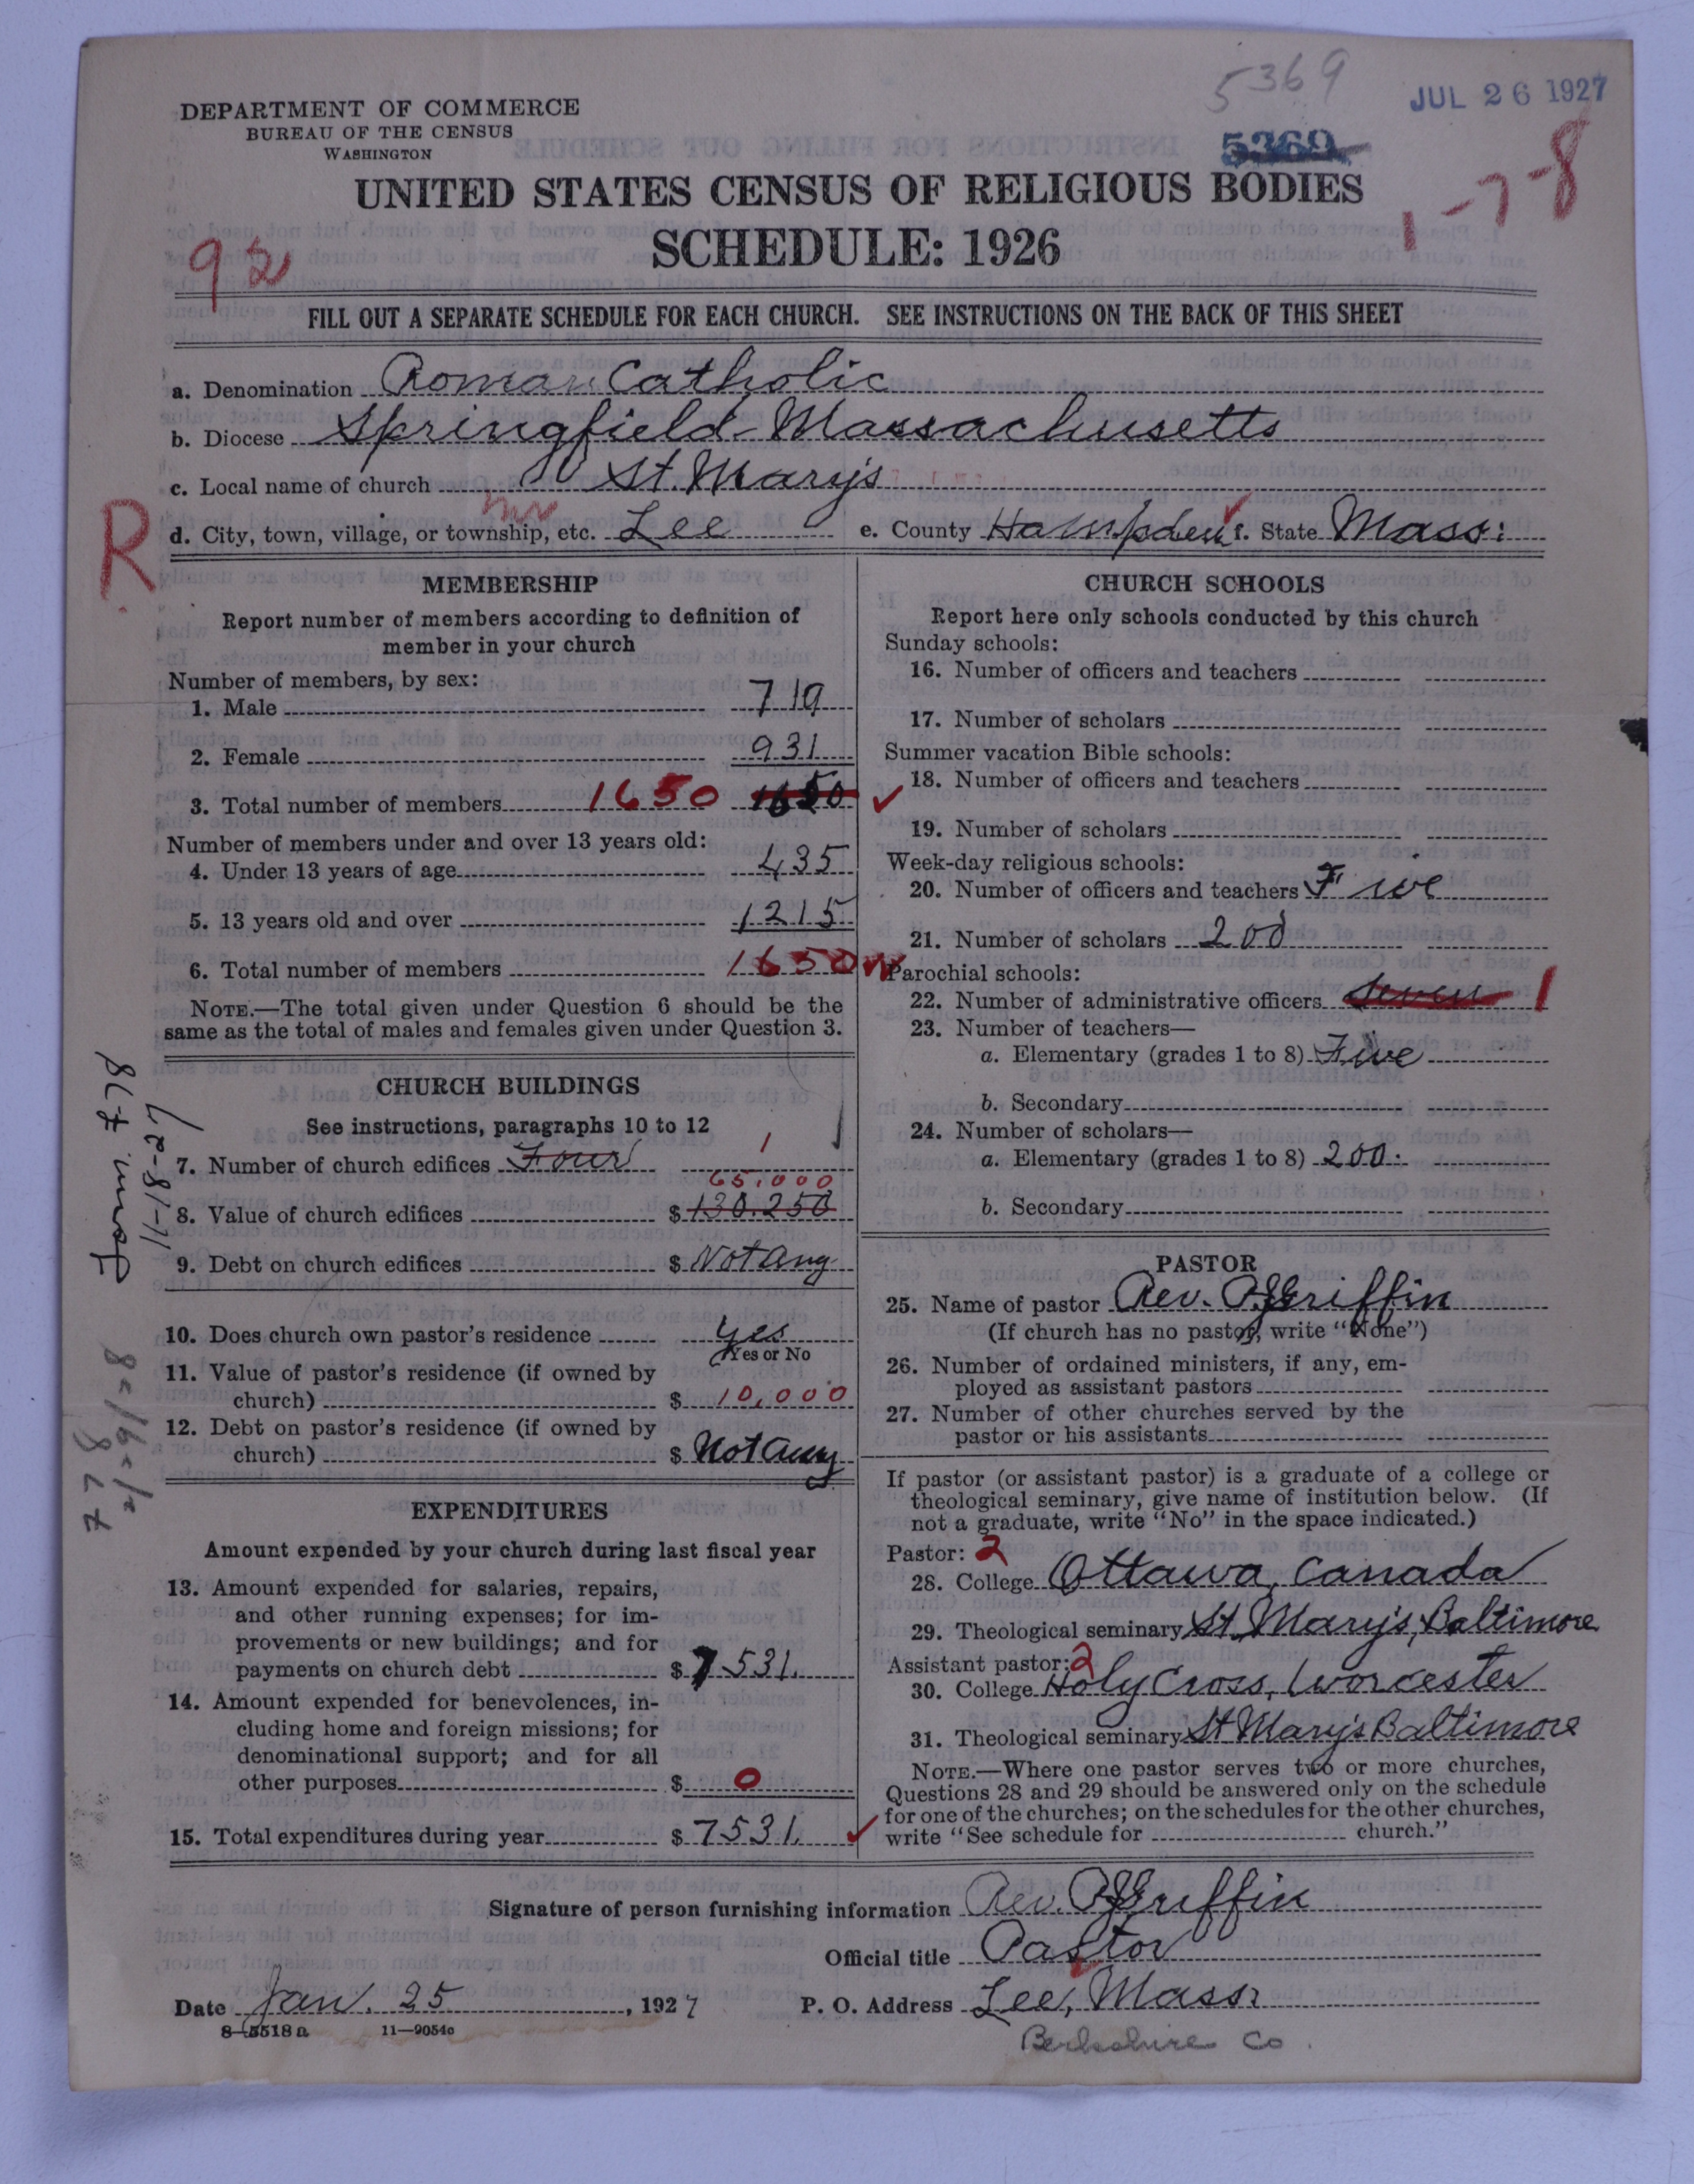 5369
JUL 26 1927
DEPARTMENT OF COMMERCE
BUREAU OF THE CENSUS
WASHINGTON
5369
UNITED STATES CENSUS OF RELIGIOUS BODIES
1-7-8
SCHEDULE: 1926
92
FILL OUT A SEPARATE SCHEDULE FOR EACH CHURCH. SEE INSTRUCTIONS ON THE BACK OF THIS SHEET
a. Denomination Roman Catholic
b. Diocese Springfield Massachusetts
c. Local name of church St. Mary's
R
d. City, town, village, or township, etc. Lee e. County Hampden f. State Mass:
MEMBERSHIP
Report number of members according to definition of
member in your church
Number of members, by sex:
1. Male 719
2. Female 931
3. Total number of members 1650 1650
Number of members under and over 13 years old:
4. Under 13 years of age 435
5. 13 years old and over 1215
6. Total number of members 1650
NOTE.—The total given under Question 6 should be the
same as the total of males and females given under Question 3.
CHURCH BUILDINGS
See instructions, paragraphs 10 to 12
7. Number of church edifices Four 1
65,000
8. Value of church edifices $ 130.250
9. Debt on church edifices $ Not any
10. Does church own pastor's residence yes
(Yes or No
11. Value of pastor's residence (if owned by
church) $ 10,000
12. Debt on pastor's residence (if owned by
church) $ Not any
EXPENDITURES
Amount expended by your church during last fiscal year
13. Amount expended for salaries, repairs,
and other running expenses; for im-
provements or new buildings; and for
payments on church debt $ 7531.
14. Amount expended for benevolences, in-
cluding home and foreign missions; for
denominational support; and for all
other purposes $ 0
15. Total expenditures during year $ 7531.
Form 7-78
11-18-27
778
CHURCH SCHOOLS
Report here only schools conducted by this church
Sunday schools:
16. Number of officers and teachers
17. Number of scholars
Summer vacation Bible schools:
18. Number of officers and teachers
19. Number of scholars
Week-day religious schools:
20. Number of officers and teachers Five
21. Number of scholars 200
Parochial schools:
22. Number of administrative officers Seven 1
23. Number of teachers—
a. Elementary (grades 1 to 8) Five
b. Secondary
24. Number of scholars—
a. Elementary (grades 1 to 8) 200.
b. Secondary
PASTOR
25. Name of pastor Rev. P.J. Griffin
(If church has no pastor, write "None")
26. Number of ordained ministers, if any, em-
ployed as assistant pastors
27. Number of other churches served by the
pastor or his assistants
If pastor (or assistant pastor) is a graduate of a college or
theological seminary, give name of institution below. (If
not a graduate, write "No" in the space indicated.)
Pastor: 2
28. College Ottawa, Canada
29. Theological seminary St. Mary's, Baltimore
Assistant pastor: 2
30. College Holy Cross, Worcester
31. Theological seminary St Mary's Baltimore
NOTE.—Where one pastor serves two or more churches,
Questions 28 and 29 should be answered only on the schedule
for one of the churches; on the schedules for the other churches,
write "See schedule for church."
Signature of person furnishing information Rev. P.J. Griffin
Official title Pastor
Date Jan. 25, 1927 P. O. Address Lee, Mass.
8—5518a 11—9054c
Berkshire Co.